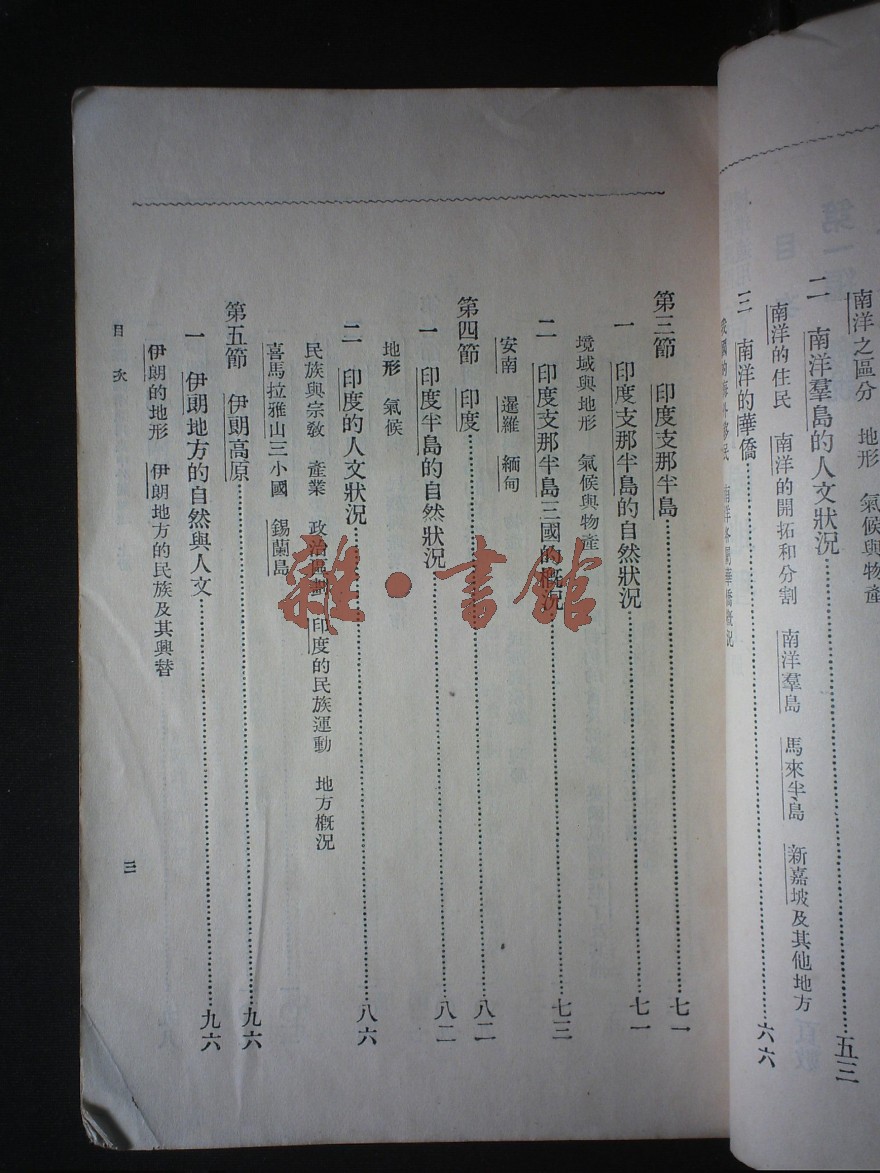 南洋之區分　地形　氣候與物產
二　南洋羣島的人文狀況……五三
南洋的住民　南洋的開拓和分割　南洋羣島　馬來半島　新嘉坡及其他地方
三　南洋的華僑……六六
我國的海外移民　南洋各屬華僑概況
第三節　印度支那半島……七一
一　印度支那半島的自然狀況……七一
境域與地形　氣候與物產
二　印度支那半島三國的概況……七三
安南　暹羅　緬甸
第四節　印度……八二
一　印度半島的自然狀況……八二
地形　氣候
二　印度的人文狀況……八六
民族與宗教　產業　政治區劃　印度的民族運動　地方概況
喜馬拉雅山三小國　錫蘭島
第五節　伊朗高原……九六
一　伊朗地方的自然與人文……九六
伊朗的地形　伊朗地方的民族及其興替
目次
三
雜·書館